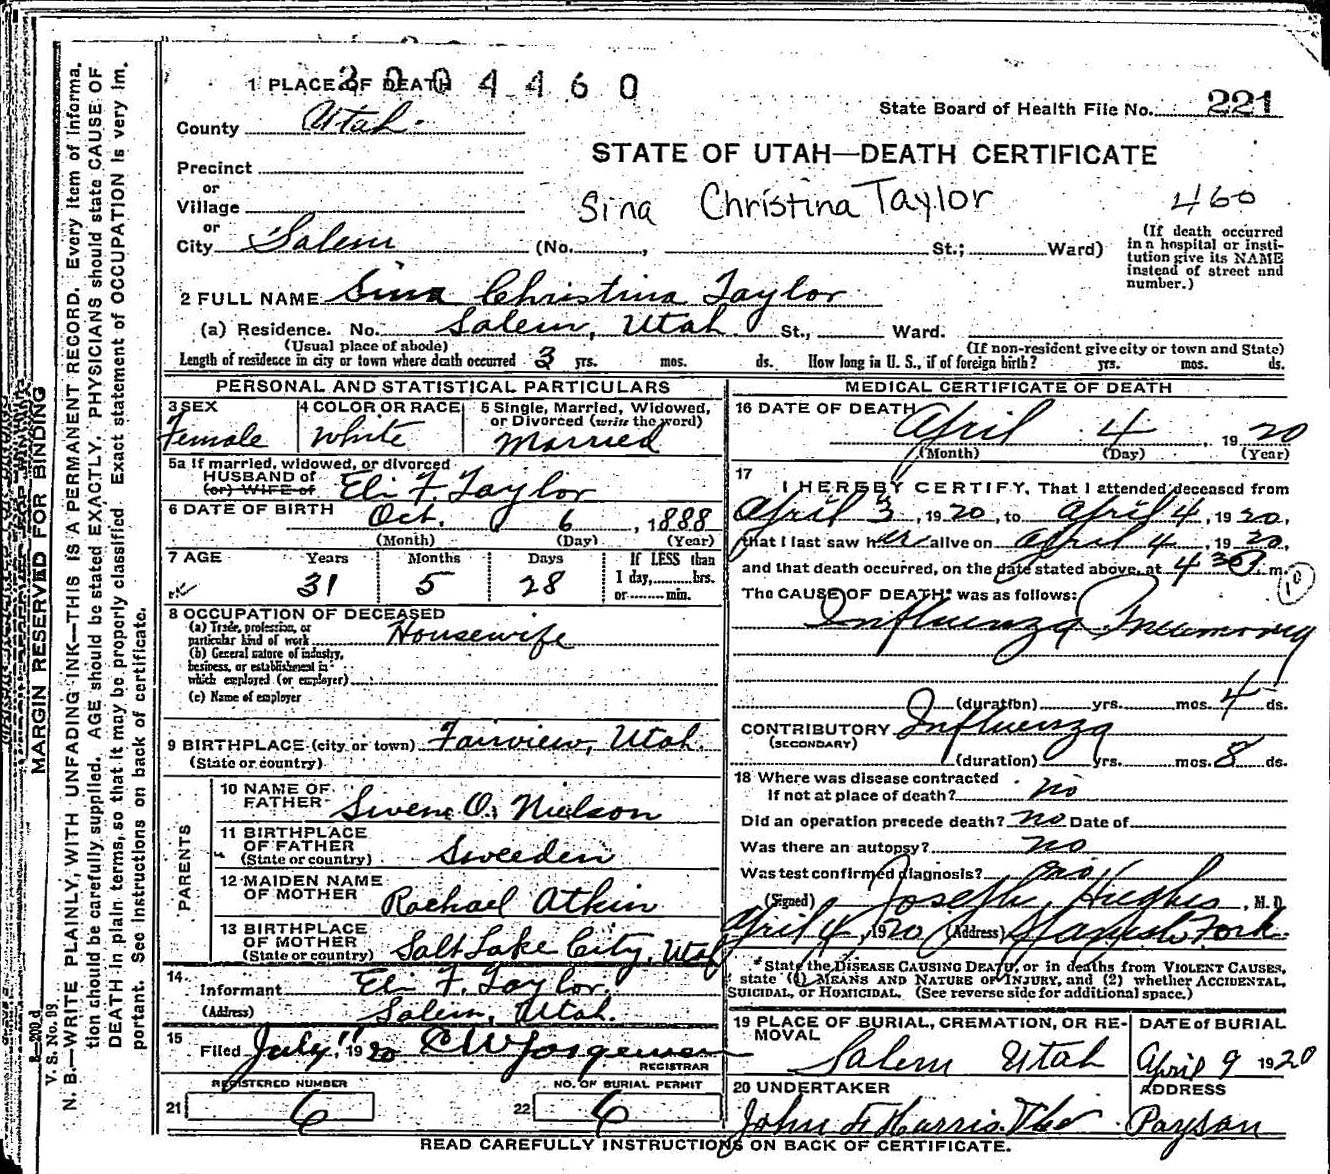 2004460
1 PLACE OF DEATH
State Board of Health File No. 221
County Utah.
STATE OF UTAH—DEATH CERTIFICATE
Precinct
or
Village
Sina Christina Taylor 460
or
City Salem (No. , St.; Ward)
(If death occurred in a hospital or insti-
tution give its NAME
instead of street and
number.)
2 FULL NAME Sina Christina Taylor
(a) Residence. No. Salem, Utah St., Ward.
(Usual place of abode) (If non-resident give city or town and State)
Length of residence in city or town where death occurred 3 yrs. mos. ds. How long in U. S., if of foreign birth? yrs. mos. ds.
PERSONAL AND STATISTICAL PARTICULARS
3 SEX
Female
4 COLOR OR RACE
White
5 Single, Married, Widowed,
or Divorced (write the word)
Married
5a If married, widowed, or divorced
HUSBAND of
(or) WIFE of Eli F. Taylor
6 DATE OF BIRTH Oct. 6, 1888
(Month) (Day) (Year)
7 AGE Years Months Days If LESS than
1 day, hrs.
or min.
31 5 28
8 OCCUPATION OF DECEASED
(a) Trade, profession, or
particular kind of work Housewife
(b) General nature of industry,
business, or establishment in
which employed (or employer)
(c) Name of employer
9 BIRTHPLACE (city or town) Fairview, Utah.
(State or country)
PARENTS
10 NAME OF
FATHER Swen O. Nielson
11 BIRTHPLACE
OF FATHER
(State or country) Sweeden
12 MAIDEN NAME
OF MOTHER Rachael Atkin
13 BIRTHPLACE
OF MOTHER
(State or country) Salt Lake City, Utah
14
Informant Eli F. Taylor.
(Address) Salem, Utah.
15
Filed July 11 1920 C W Jorgensen
REGISTRAR
REGISTERED NUMBER NO. OF BURIAL PERMIT
21 6 22 6
MEDICAL CERTIFICATE OF DEATH
16 DATE OF DEATH
April 4, 1920
(Month) (Day) (Year)
17
I HEREBY CERTIFY, That I attended deceased from
April 3, 1920, to April 4, 1920,
that I last saw her alive on April 4, 1920,
and that death occurred, on the date stated above, at 4 30 P m.
The CAUSE OF DEATH* was as follows:
Influenza Pneumonia
(duration) yrs. mos. 4 ds.
CONTRIBUTORY Influenza
(SECONDARY)
(duration) yrs. mos. 8 ds.
18 Where was disease contracted
if not at place of death? no
Did an operation precede death? no Date of
Was there an autopsy? no
Was test confirmed diagnosis? no
(Signed) Joseph Hughes, M. D.
April 4, 1920 (Address) Spanish Fork
*State the DISEASE CAUSING DEATH, or in deaths from VIOLENT CAUSES,
state (1) MEANS AND NATURE OF INJURY, and (2) whether ACCIDENTAL,
SUICIDAL, or HOMICIDAL. (See reverse side for additional space.)
19 PLACE OF BURIAL, CREMATION, OR RE-
MOVAL
Salem Utah
DATE of BURIAL
April 9 1920
20 UNDERTAKER
John F Harris
ADDRESS
Payson
READ CAREFULLY INSTRUCTIONS ON BACK OF CERTIFICATE.
MARGIN RESERVED FOR BINDING
N. B.—WRITE PLAINLY, WITH UNFADING INK—THIS IS A PERMANENT RECORD. Every item of informa-
tion should be carefully supplied. AGE should be stated EXACTLY. PHYSICIANS should state CAUSE OF
DEATH in plain terms, so that it may be properly classified. Exact statement of OCCUPATION is very im-
portant. See instructions on back of certificate.
V. S. No. 98